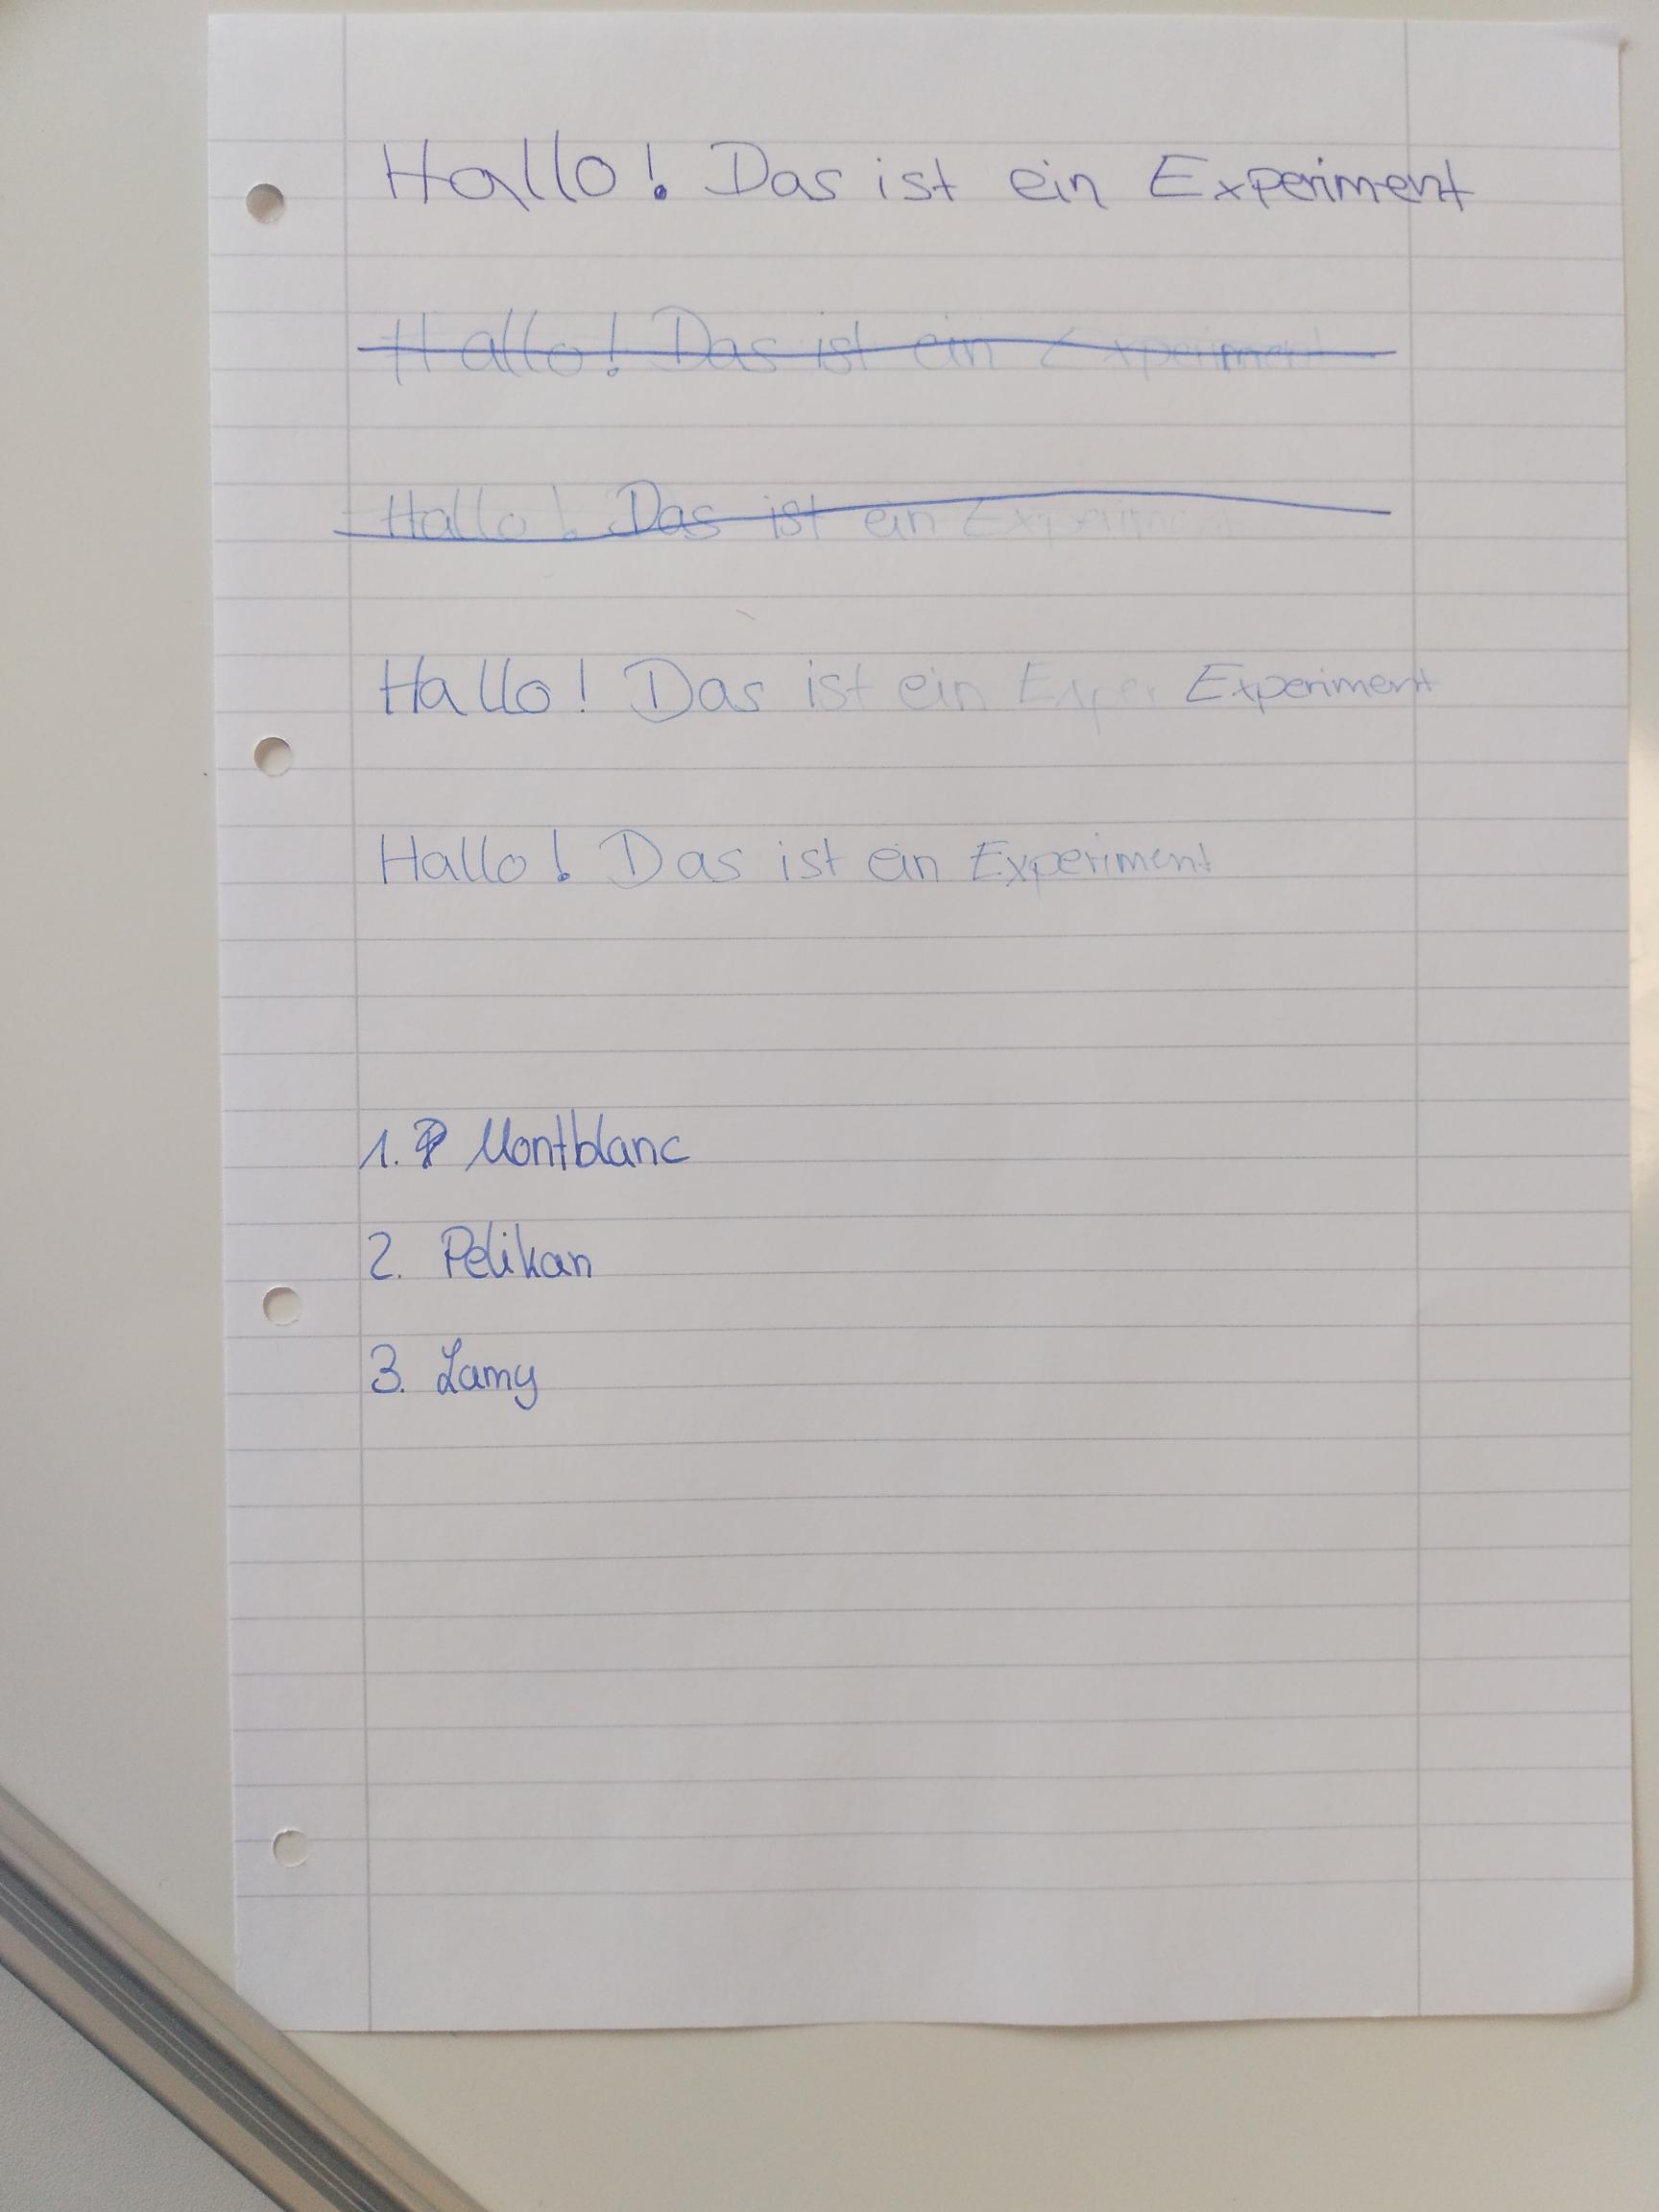 Hallo! Das ist ein Experiment
Hallo! Das ist ein Experiment
Hallo! Das ist ein Experiment
Hallo! Das ist ein Exper Experiment
Hallo! Das ist ein Experiment
1. Montblanc
2. Pelikan
3. Lamy